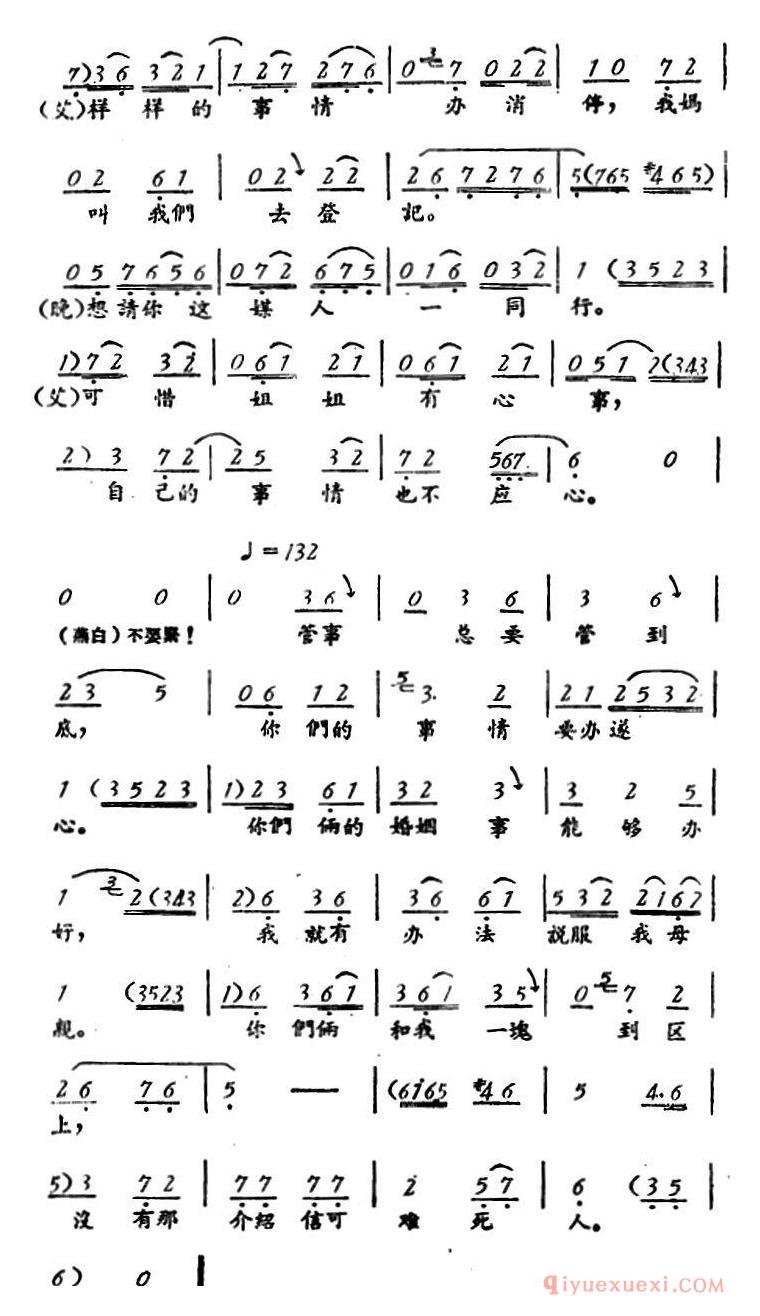 7)36 321 | 127 276 | 0 3 7 022 | 10 72 |
(艾)样 样的 事情 办消 停，我媽
02 61 | 02 22 | 26 7276 | 5(765 #465) |
叫 我們 去登 記。
05 7656 | 072 675 | 016 032 | 1 (3523
(晚)想請你这 媒人 一同 行。
1)72 32 | 061 21 | 061 21 | 051 2(343
(艾)可 惜 姐姐 有心 事，
2)3 72 | 25 32 | 72 567 | 6 0 |
自 己的 事情 也不应 心。
♩=132
0 0 | 0 36 | 0 3 6 | 3 6 |
(燕白)不要緊！ 管事 总要 管到
23 5 | 06 12 | 5 3. 2 | 21 2532 |
底， 你們的 事情 要办遂
1 (3523 | 1)23 61 | 32 3 | 3 2 5 |
心。 你們俩的 婚姻事 能够办
1 3 2(343 | 2)6 36 | 36 61 | 532 2162 |
好， 我就有 办法 説服我母
1 (3523 | 1)6 361 | 361 35 | 0 5 7 2 |
親。 你們俩 和我一塊 到区
26 76 | 5 — | (6165 #46 | 5 4.6 |
上，
5)3 72 | 77 77 | 2 57 | 6 (35 |
沒有那 介紹信可 难死 人。
6) 0 |
qiyuexuexi.com